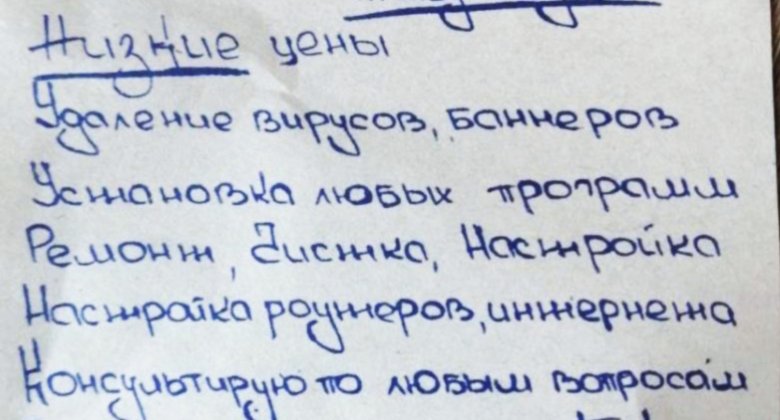 Низкие цены
Удаление вирусов, баннеров
Установка любых программ
Ремонт, Чистка, Настройка
Настройка роутеров, интернета
Консультирую по любым вопросам